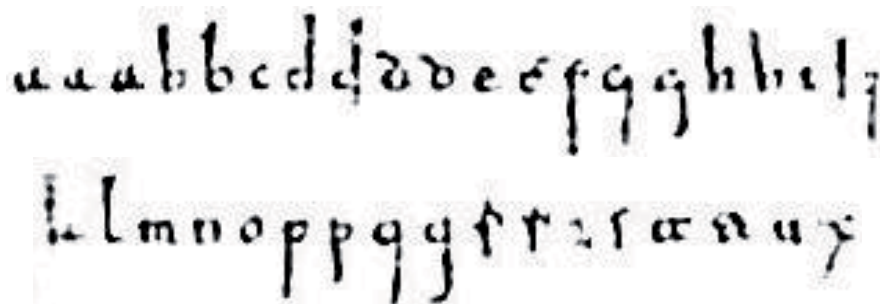 a a a b b c d d d d e e f g g h h i i j
k l m n o p p q q r r s t t u x